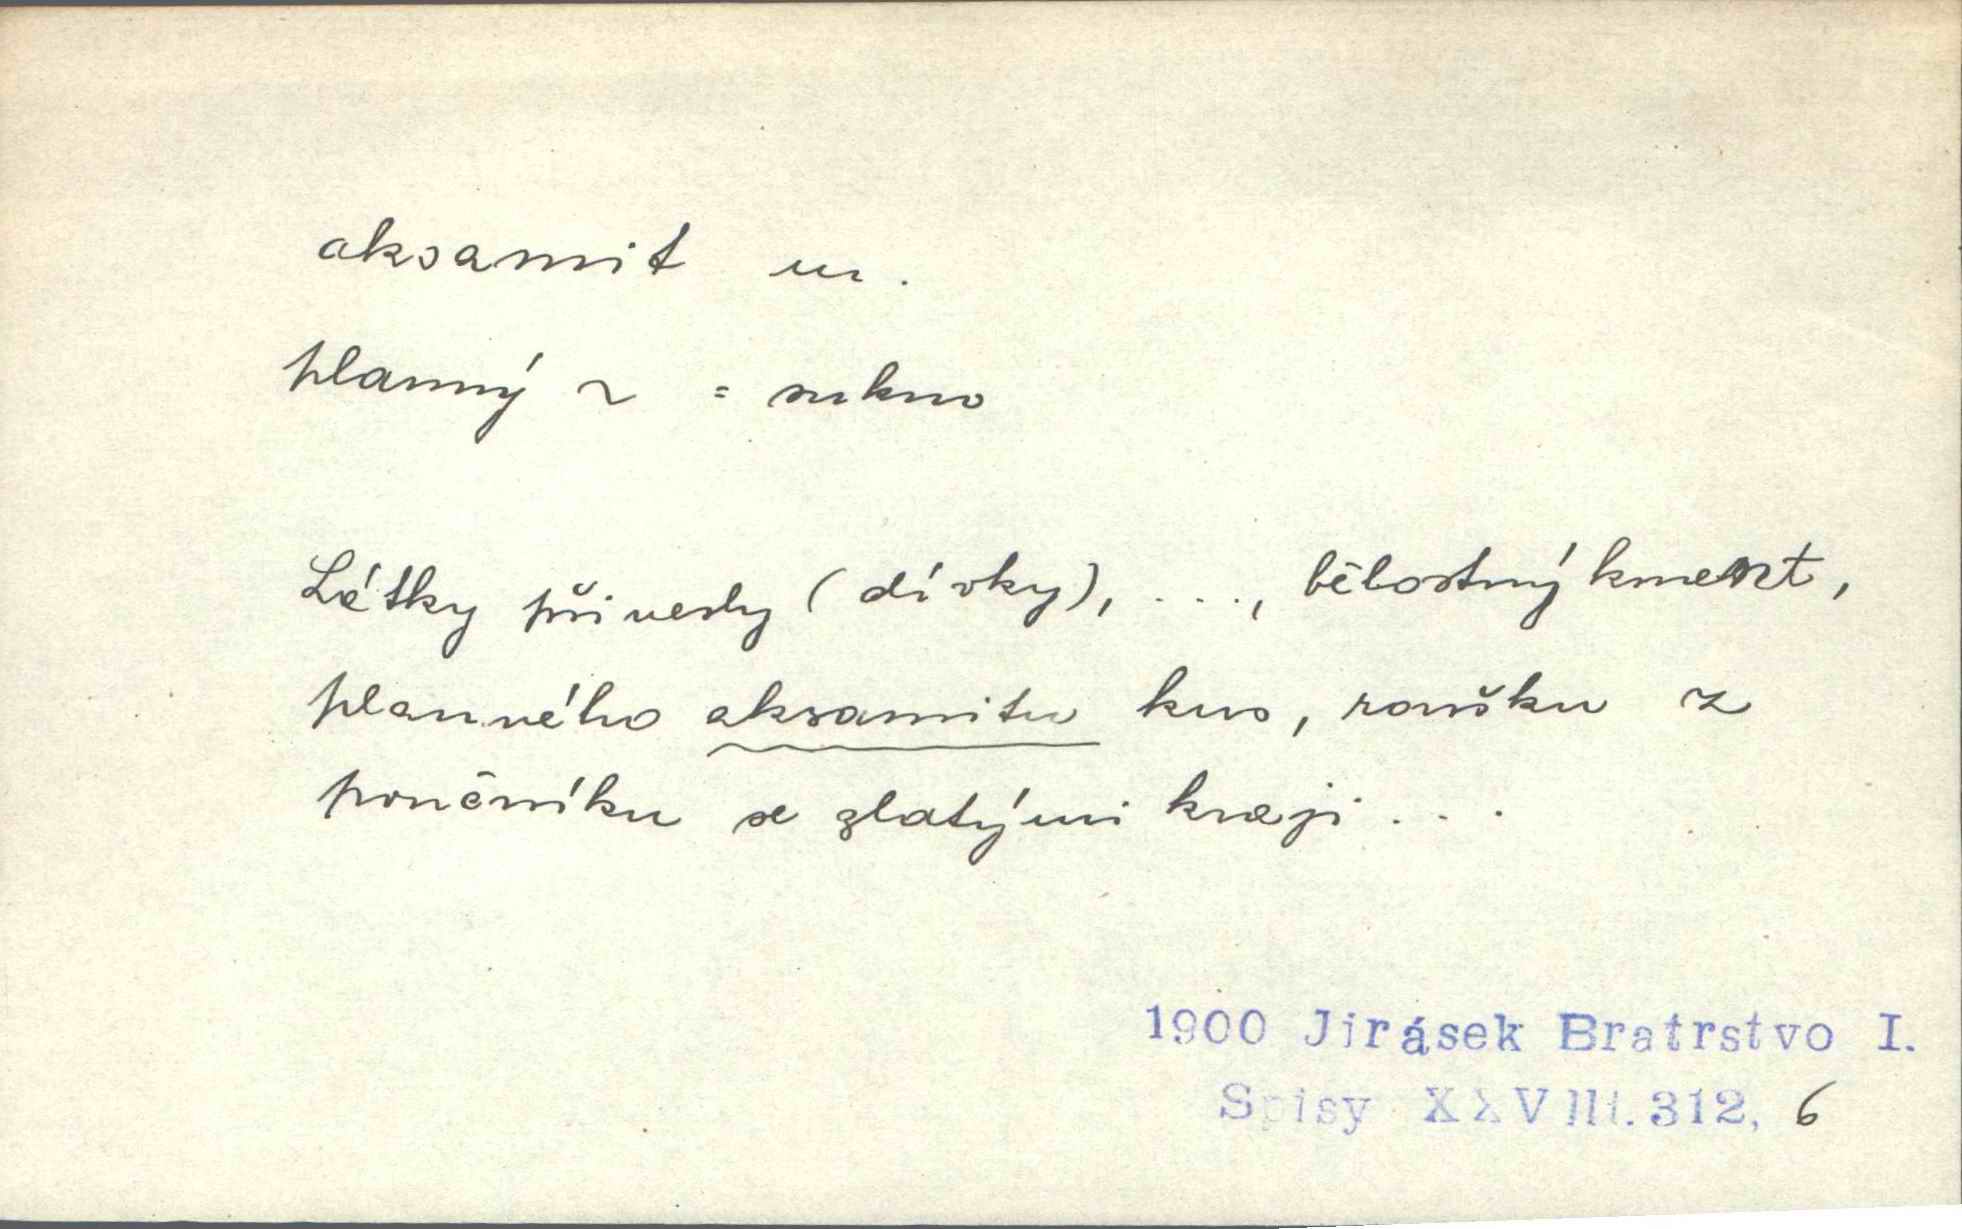 aksamit m.
planný ~ = sukno
Látky přivezly (dívky), ..., bělostný kment,
planného aksamitu kus, roušku z
pončníku se zlatými kraji...
1900 Jirásek Bratrstvo I.
Spisy XXVIII. 312, 6